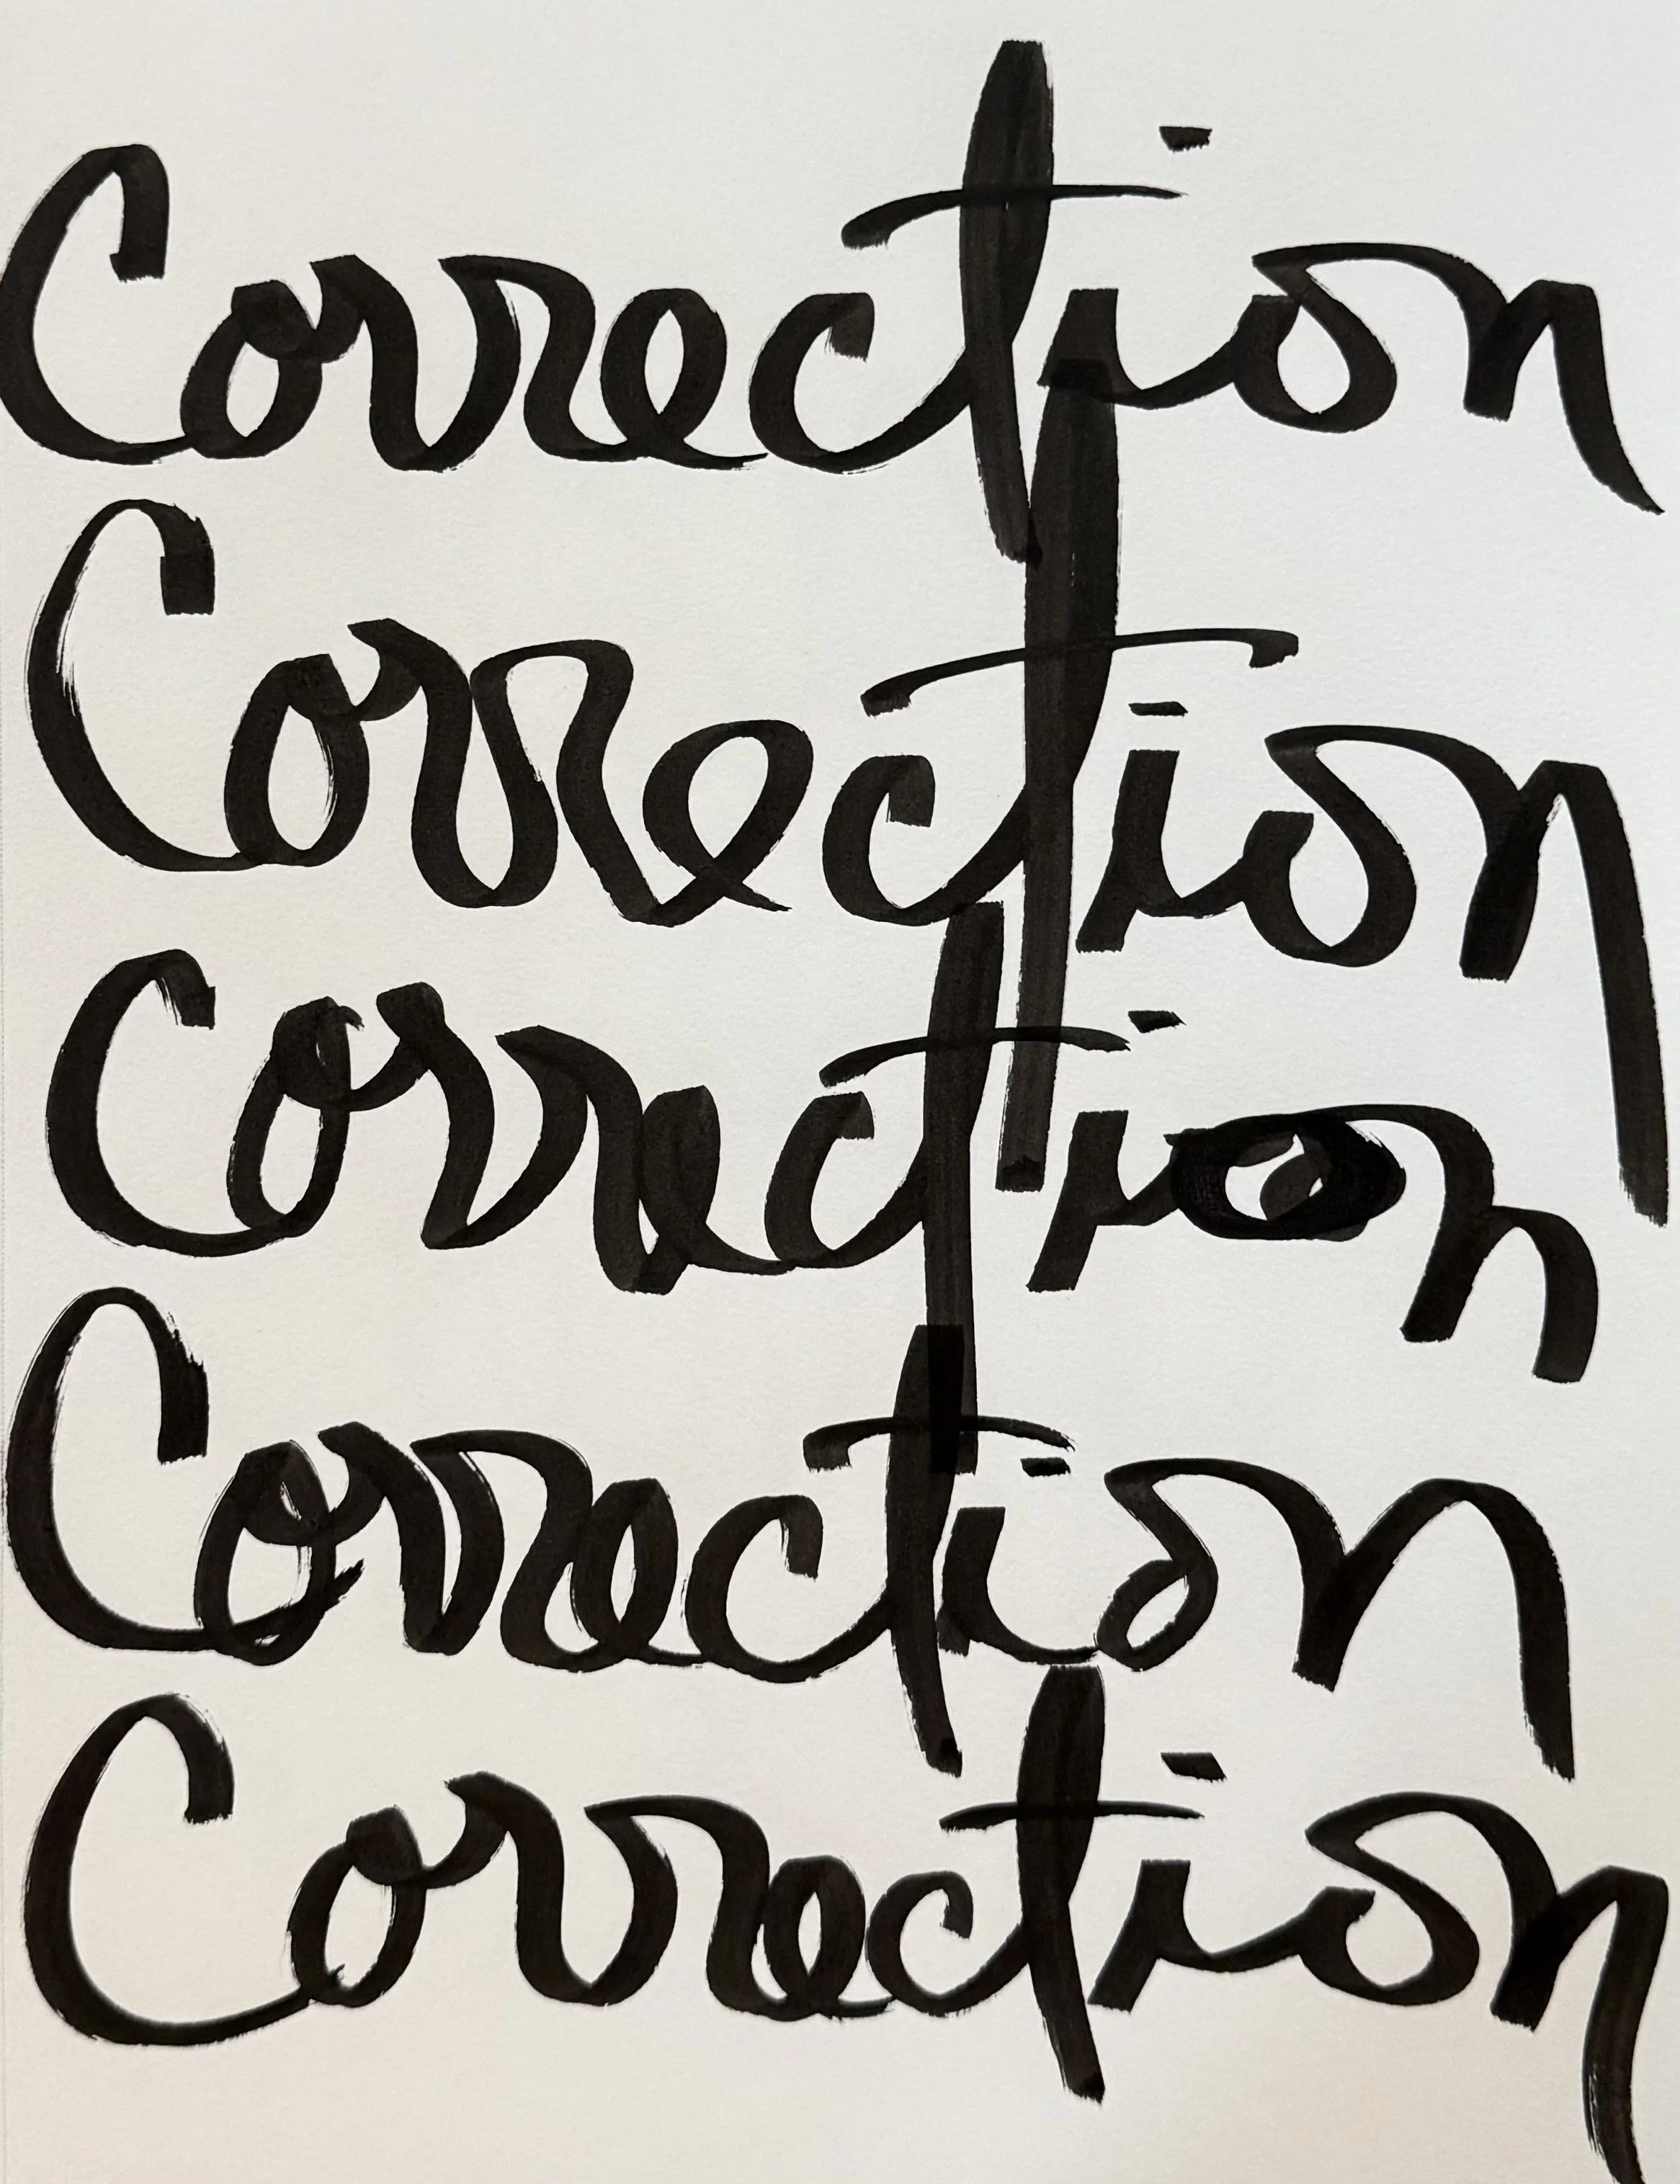 Correction
Correction
Correction
Correction
Correction